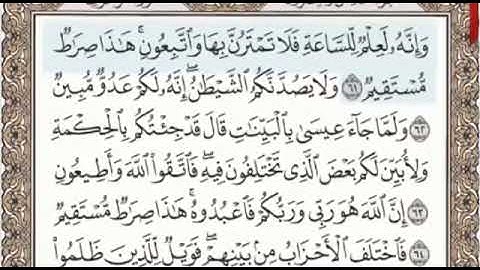 وَإِنَّهُۥ لَعِلْمٌ لِّلسَّاعَةِ فَلَا تَمْتَرُنَّ بِهَا وَٱتَّبِعُونِ ۚ هَٰذَا صِرَٰطٌ
مُّسْتَقِيمٌ ٦١ وَلَا يَصُدَّنَّكُمُ ٱلشَّيْطَٰنُ ۖ إِنَّهُۥ لَكُمْ عَدُوٌّ مُّبِينٌ
٦٢ وَلَمَّا جَآءَ عِيسَىٰ بِٱلْبَيِّنَٰتِ قَالَ قَدْ جِئْتُكُم بِٱلْحِكْمَةِ
وَلِأُبَيِّنَ لَكُم بَعْضَ ٱلَّذِى تَخْتَلِفُونَ فِيهِ ۖ فَٱتَّقُوا۟ ٱللَّهَ وَأَطِيعُونِ
٦٣ إِنَّ ٱللَّهَ هُوَ رَبِّى وَرَبُّكُمْ فَٱعْبُدُوهُ ۚ هَٰذَا صِرَٰطٌ مُّسْتَقِيمٌ
٦٤ فَٱخْتَلَفَ ٱلْأَحْزَابُ مِنۢ بَيْنِهِمْ ۖ فَوَيْلٌ لِّلَّذِينَ ظَلَمُوا۟